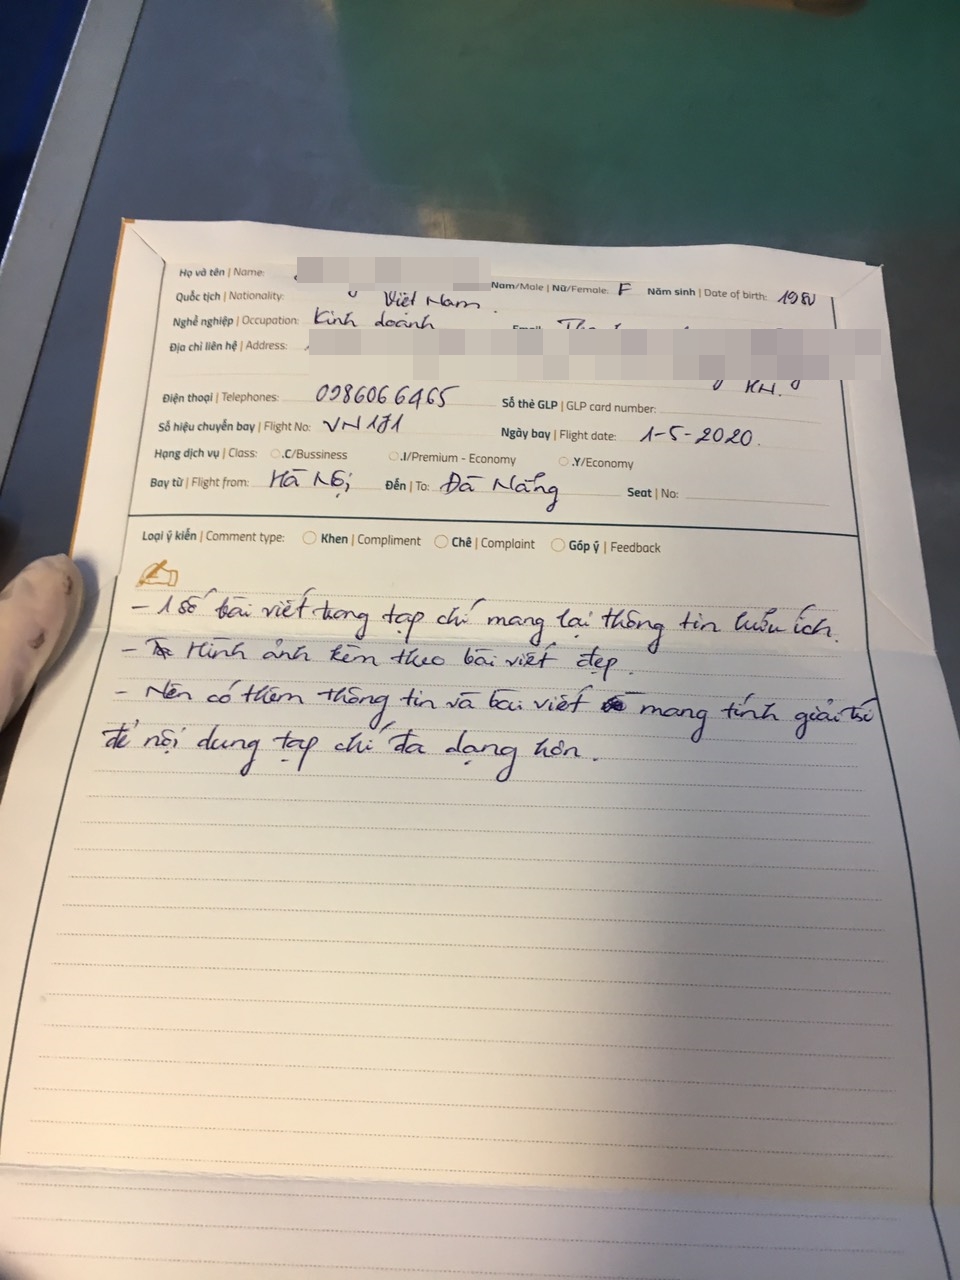 Họ và tên | Name: Nam/Male | Nữ/Female: F Năm sinh | Date of birth: 1980
Quốc tịch | Nationality: Việt Nam.
Nghề nghiệp | Occupation: Kinh doanh
Địa chỉ liên hệ | Address: KH.
Điện thoại | Telephones: 0986066465 Số thẻ GLP | GLP card number:
Số hiệu chuyến bay | Flight No: VN171 Ngày bay | Flight date: 1-5-2020.
Hạng dịch vụ | Class: .C/Bussiness .I/Premium - Economy .Y/Economy
Bay từ | Flight from: Hà Nội Đến | To: Đà Nẵng Seat | No:
Loại ý kiến | Comment type: Khen | Compliment Chê | Complaint Góp ý | Feedback
- 1 số bài viết trong tạp chí mang lại thông tin hữu ích.
- Hình ảnh kèm theo bài viết đẹp.
- Nên có thêm thông tin và bài viết mang tính giải trí
để nội dung tạp chí đa dạng hơn.